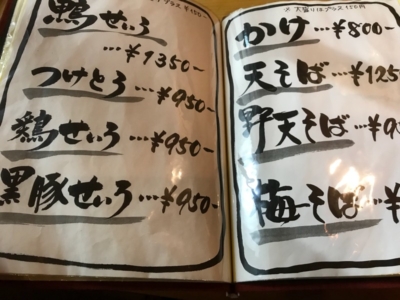 プラス ¥150-
鴨せいろ
…¥1350-
つけとろ …¥950-
鶏せいろ …¥950-
黒豚せいろ…¥950-
大盛りはプラス150円
かけ …¥800-
天そば …¥125
野天そば …¥9
梅そば …¥